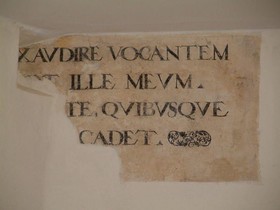 XAVDIRE VOCANTEM
ILLE MEVM.
TE, QVIBVSQVE
CADET.